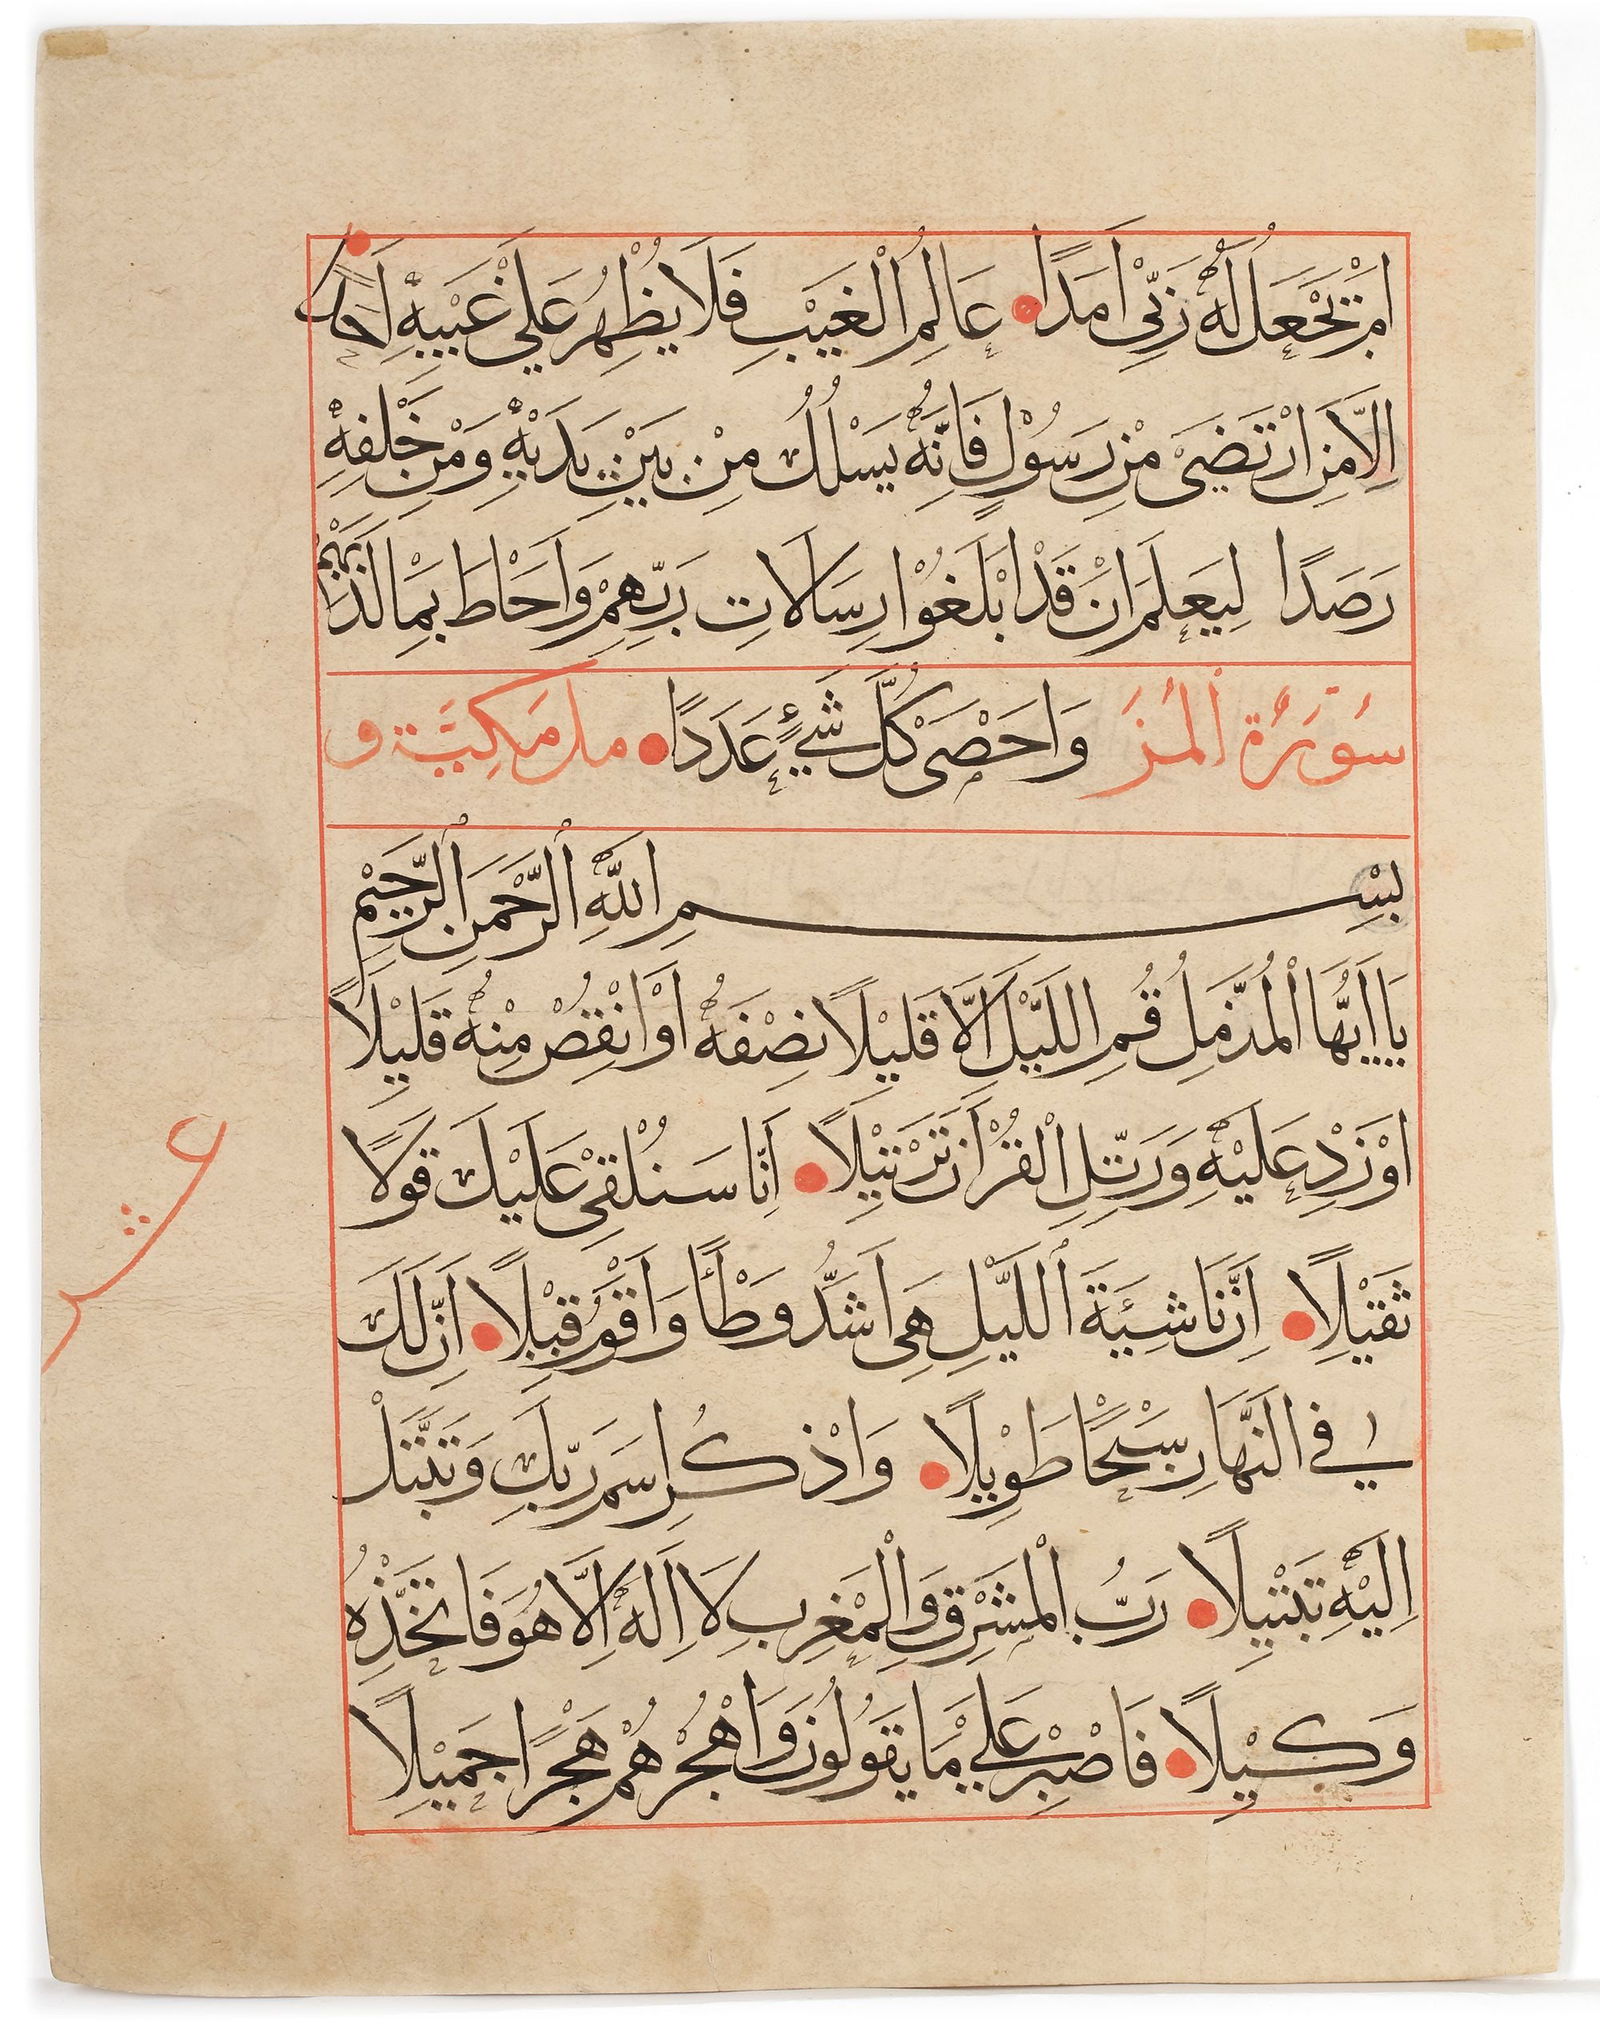 اَمْ يَجْعَلُ لَهُ رَبّٖى اَمَدًا عَالِمُ الْغَيْبِ فَلَا يُظْهِرُ عَلٰي غَيْبِهٖ اَحَدًا
اِلَّا مَنِ ارْتَضَىٰ مِنْ رَسُوْلٍ فَاِنَّهُ يَسْلُكُ مِنْ بَيْنِ يَدَيْهِ وَمِنْ خَلْفِهٖ
رَصَدًا لِيَعْلَمَ اَنْ قَدْ اَبْلَغُوْا رِسَالَاتِ رَبِّهِمْ وَاَحَاطَ بِمَا لَدَيْهِمْ
سُوْرَةُ الْمُزَ وَاَحْصَى كُلَّ شَيْءٍ عَدَدًا مل مَكِيَّة و
بِسْمِ اللهِ الرَّحْمَنِ الرَّحِيْمِ
يَا اَيُّهَا الْمُزَّمِلُ قُمِ اللَّيْلَ اِلَّا قَلِيْلًا نِصْفَهُ اَوْ انْقُصْ مِنْهُ قَلِيْلًا
اَوْ زِدْ عَلَيْهِ وَرَتِّلِ الْقُرْاَنَ تَرْتِيْلًا اِنَّا سَنُلْقِىْ عَلَيْكَ قَوْلًا
ثَقِيْلًا اِنَّ نَاشِئَةَ اللَّيْلِ هِىَ اَشَدُّ وَطْأً وَاَقْوَمُ قِيْلًا اِنَّ لَكَ
فِي النَّهَارِ سَبْحًا طَوِيْلًا وَاذْكُرِ اسْمَ رَبِّكَ وَتَبَتَّلْ
اِلَيْهِ تَبْتِيْلًا رَبُّ الْمَشْرِقِ وَالْمَغْرِبِ لَا اِلَهَ اِلَّا هُوَ فَاتَّخِذْهُ
وَكِيْلًا فَاصْبِرْ عَلٰي مَا يَقُوْلُوْنَ وَاهْجُرْهُمْ هَجْرًا جَمِيْلًا
عشر